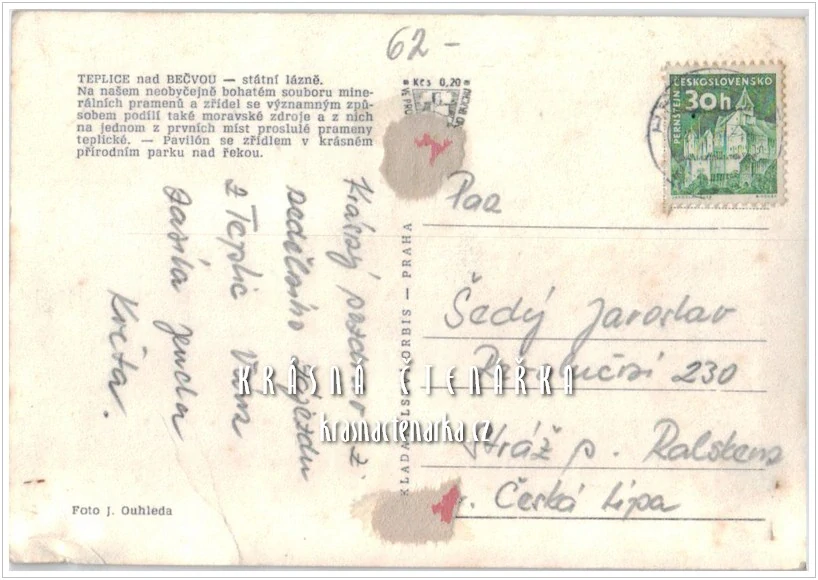 62 –
TEPLICE nad BEČVOU — státní lázně.
Na našem neobyčejně bohatém souboru mine-
rálních pramenů a zřídel se významným způ-
sobem podílí také moravské zdroje a z nich
na jednom z prvních míst proslulé prameny
teplické. — Pavilón se zřídlem v krásném
přírodním parku nad řekou.
Kčs 0,20
ČESKOSLOVENSKO
30h
PERNŠTEJN
Krásný pozdrav z
nedělního zájezdu
z Teplic Vám
zasílá Jenda
Květa.
ORBIS — PRAHA
Paa
Šedý Jaroslav
Revoluční 230
Stráž p. Ralskem
Česká Lípa
KRÁSNÁ ČTENÁŘKA
krasnactenarka.cz
Foto J. Ouhleda